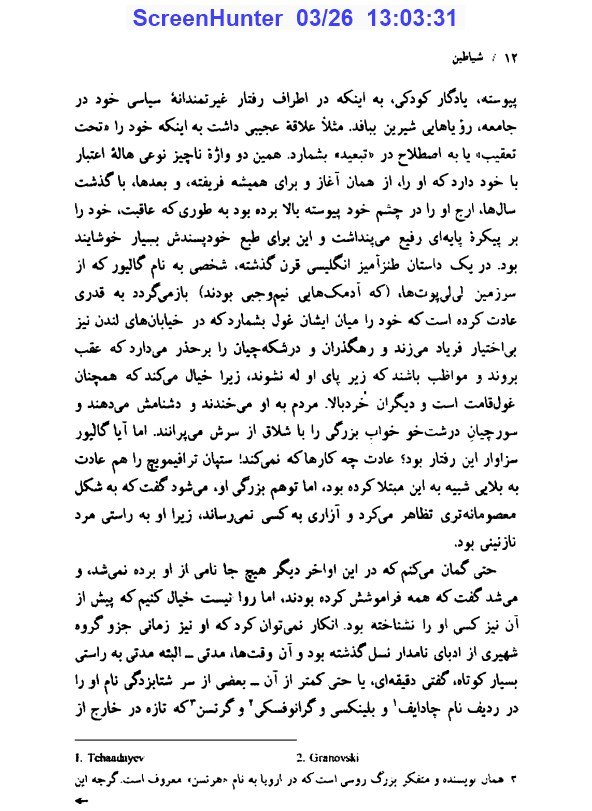 ScreenHunter 03/26 13:03:31
۱۲ / شیاطین
پیوسته، یادگار کودکی، به اینکه در اطراف رفتار غیرتمندانهٔ سیاسی خود در
جامعه، رؤیاهایی شیرین ببافد. مثلاً علاقهٔ عجیبی داشت به اینکه خود را «تحت
تعقیب» یا به اصطلاح در «تبعید» بشمارد. همین دو واژهٔ ناچیز نوعی هالهٔ اعتبار
با خود دارد که او را، از همان آغاز و برای همیشه فریفته، و بعدها، با گذشت
سال‌ها، ارج او را در چشم خود پیوسته بالا برده بود به طوری که عاقبت، خود را
بر پیکرهٔ پایه‌ای رفیع می‌پنداشت و این برای طبع خودپسندش بسیار خوشایند
بود. در یک داستان طنزآمیز انگلیسی قرن گذشته، شخصی به نام گالیور که از
سرزمین لی‌لی‌پوت‌ها، (که آدمک‌هایی نیم‌وجبی بودند) بازمی‌گردد به قدری
عادت کرده است که خود را میان ایشان غول بشمارد که در خیابان‌های لندن نیز
بی‌اختیار فریاد می‌زند و رهگذران و درشکه‌چیان را برحذر می‌دارد که عقب
بروند و مواظب باشند که زیر پای او له نشوند، زیرا خیال می‌کند که همچنان
غول‌قامت است و دیگران خُردبالا. مردم به او می‌خندند و دشنامش می‌دهند و
سورچیانِ درشت‌خو خواب بزرگی را با شلاق از سرش می‌پرانند. اما آیا گالیور
سزاوار این رفتار بود؟ عادت چه کارها که نمی‌کند! ستپان ترافیمویچ را هم عادت
به بلایی شبیه به این مبتلا کرده بود، اما توهم بزرگی او، می‌شود گفت که به شکل
معصومانه‌تری تظاهر می‌کرد و آزاری به کسی نمی‌رساند، زیرا او به راستی مرد
نازنینی بود.
حتی گمان می‌کنم که در این اواخر دیگر هیچ جا نامی از او برده نمی‌شد، و
می‌شد گفت که همه فراموشش کرده بودند، اما روا نیست خیال کنیم که پیش از
آن نیز کسی او را نشناخته بود. انکار نمی‌توان کرد که او نیز زمانی جزو گروه
شهیری از ادبای نامدار نسل گذشته بود و آن وقت‌ها، مدتی ــ البته مدتی به راستی
بسیار کوتاه، گفتی دقیقه‌ای، یا حتی کمتر از آن ــ بعضی از سر شتابزدگی نام او را
در ردیف نام چادایف۱ و بلینکسی و گرانوفسکی۲ و گرتسن۳ که تازه در خارج از
1. Tchaadayev 2. Granovski
۳ همان نویسنده و متفکر بزرگ روسی است که در اروپا به نام «هرتسن» معروف است. گرچه این
←